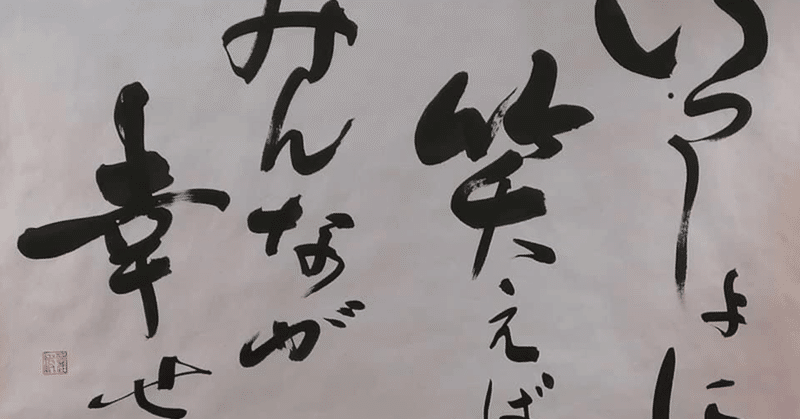 いっしょに
笑えば
みんなが
幸せ